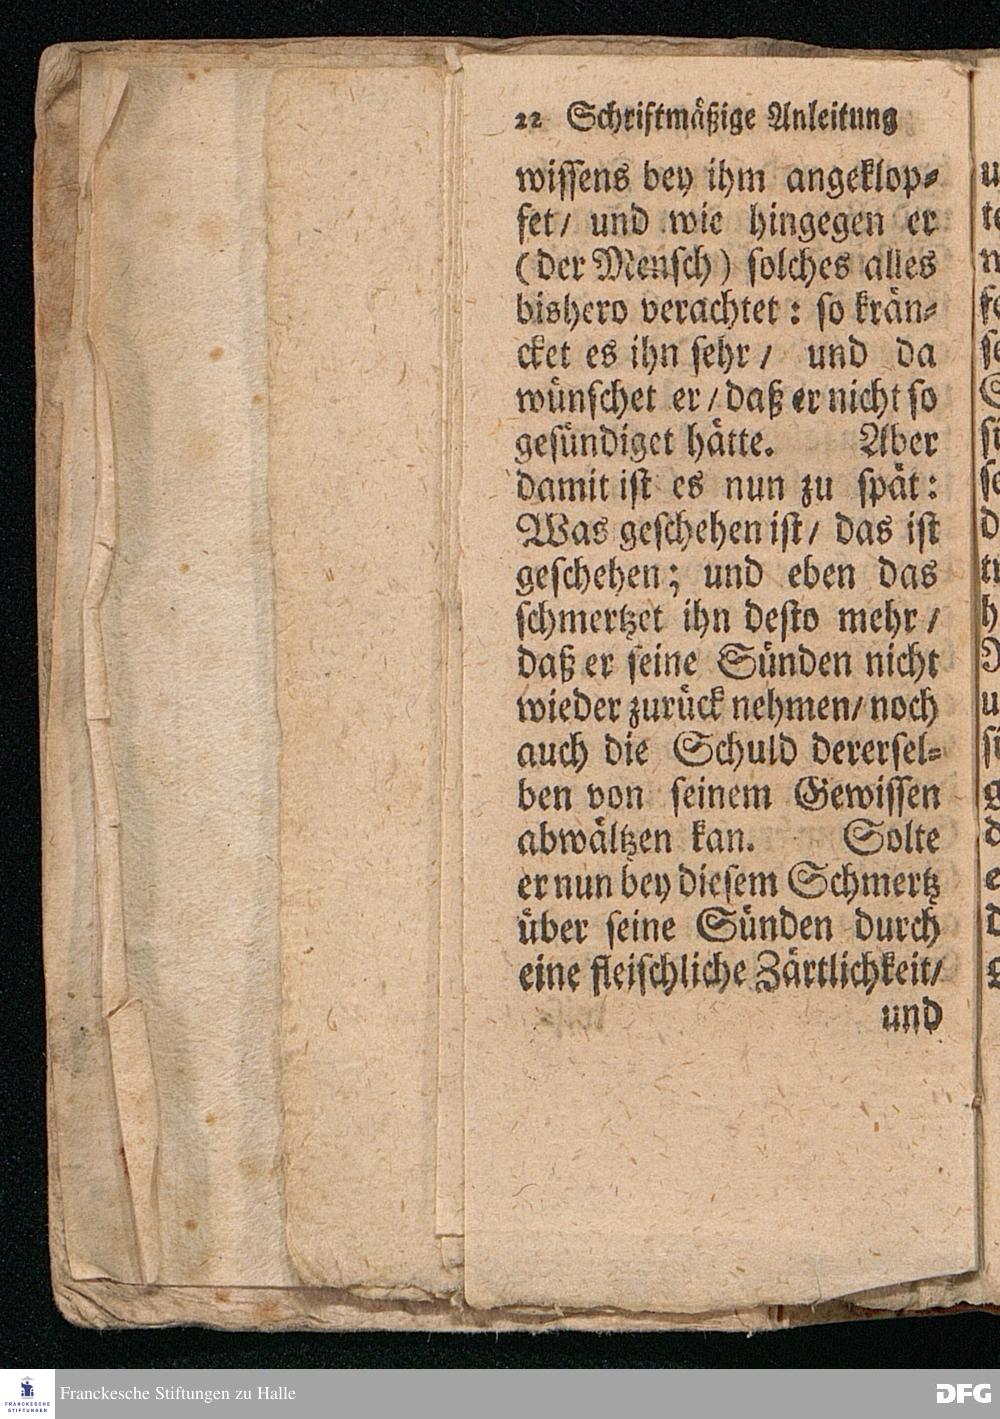 22 Schriftmäßige Anleitung
wissens bey ihm angeklop⸗
fet/ und wie hingegen er
(der Mensch) solches alles
bishero verachtet: so krän⸗
cket es ihn sehr/ und da
wünschet er/ daß er nicht so
gesündiget hätte. Aber
damit ist es nun zu spät:
Was geschehen ist/ das ist
geschehen; und eben das
schmertzet ihn desto mehr/
daß er seine Sünden nicht
wieder zurück nehmen/ noch
auch die Schuld derersel⸗
ben von seinem Gewissen
abwältzen kan. Solte
er nun bey diesem Schmertz
über seine Sünden durch
eine fleischliche Zärtlichkeit/
und
FRANCKESCHE
STIFTUNGEN
Franckesche Stiftungen zu Halle
DFG